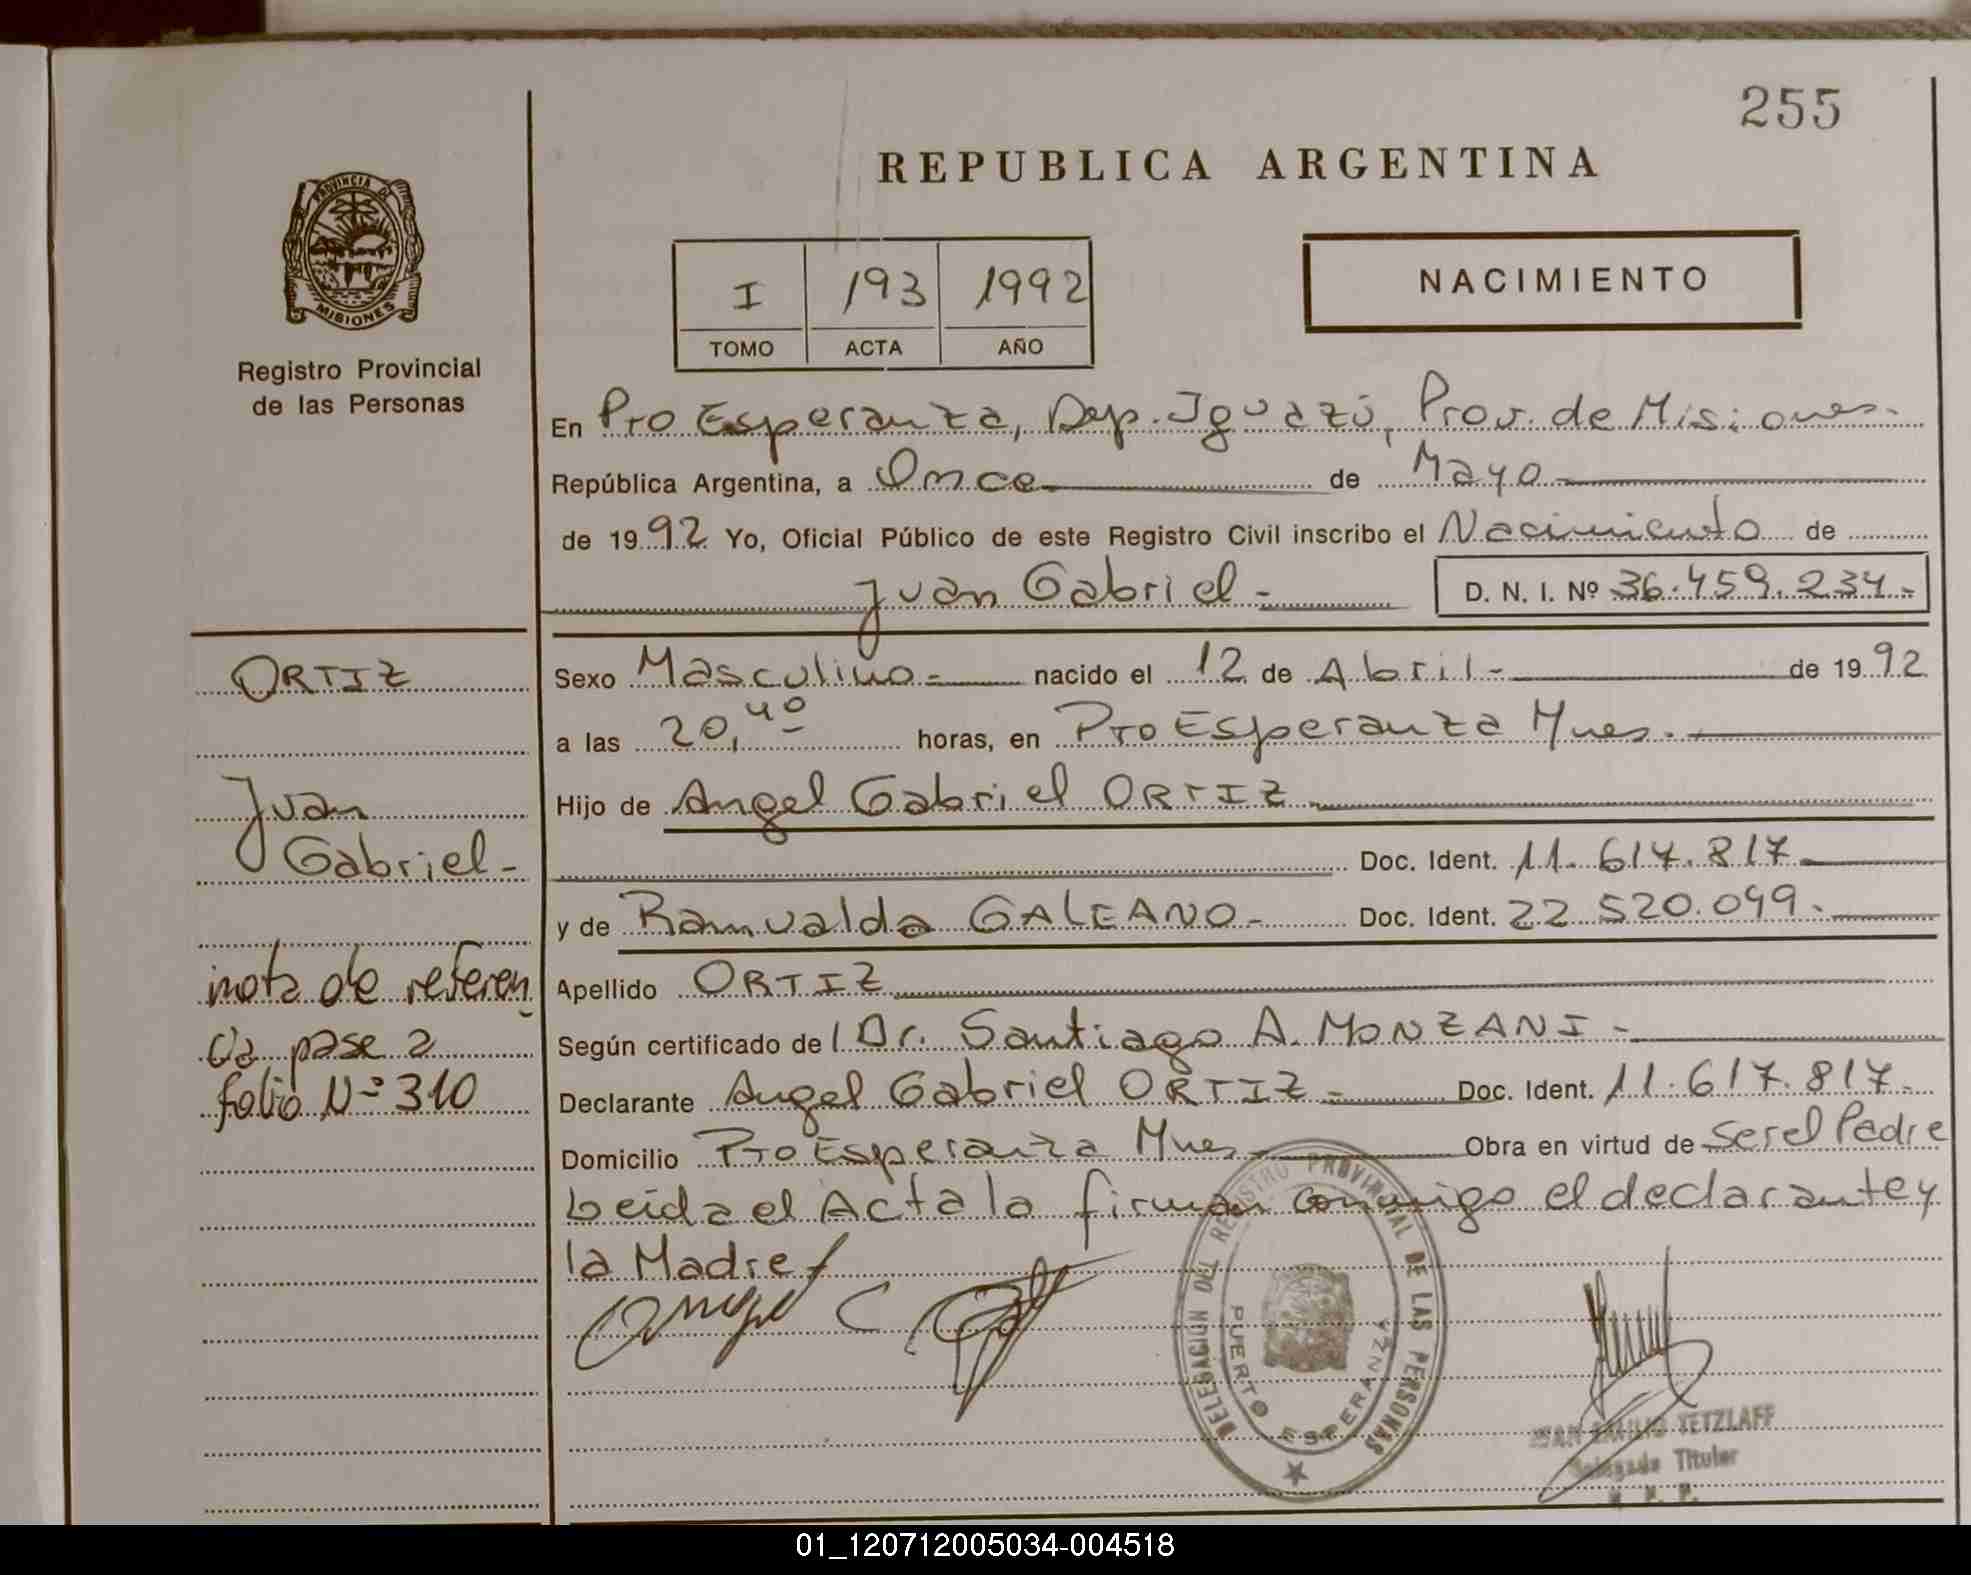 255
REPUBLICA ARGENTINA
PROVINCIA DE
MISIONES
Registro Provincial
de las Personas
I 193 1992
TOMO ACTA AÑO
NACIMIENTO
En Pto Esperanza, Dep. Iguazú, Prov. de Misiones.
República Argentina, a Once de Mayo
de 1992. Yo, Oficial Público de este Registro Civil inscribo el Nacimiento de
Juan Gabriel - D. N. I. Nº 36.459.234.-
ORTIZ
Juan
Gabriel-
nota de referen
cia pase a
folio Nº 310
Sexo Masculino.- nacido el 12 de Abril- de 1992
a las 20,40 horas, en Pto Esperanza Mnes.
Hijo de Angel Gabriel ORTIZ
Doc. Ident. 11.617.817
y de Ramualda GALEANO.- Doc. Ident. 22.520.099.-
Apellido ORTIZ
Según certificado del Dr. Santiago A. MONZANI-
Declarante Angel Gabriel ORTIZ- Doc. Ident. 11.617.817.-
Domicilio Pto Esperanza Mnes Obra en virtud de ser el Padre
Leida el Acta la firman conmigo el declarante y
la Madre
DELEGACION DEL REGISTRO PROVINCIAL DE LAS PERSONAS
PUERTO ESPERANZA
JUAN EMILIO TETZLAFF
Delegado Titular
R. P. P.
01_120712005034-004518